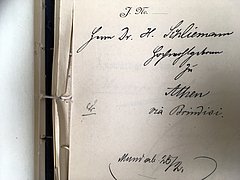 J. N.
Herrn Dr. H. Schliemann
Hochwohlgeboren
zu
Athen
via Brindisi